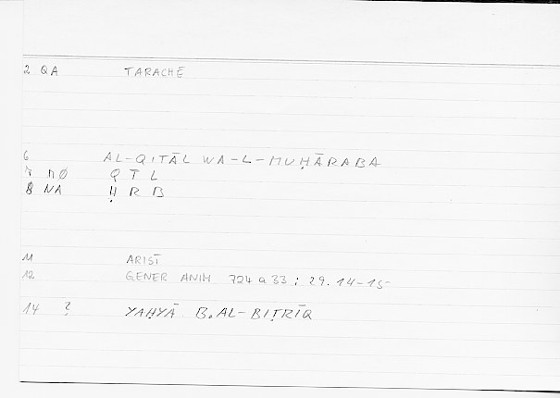 2 QA TARACHĒ
6 AL-QITĀL WA-L-MUḤĀRABA
7 MØ Q T L
8 NA Ḥ R B
11 ARIST
12 GENER ANIM 724 a 33 ; 29.14-15
14 ? YAḤYĀ B. AL-BIṬRĪQ